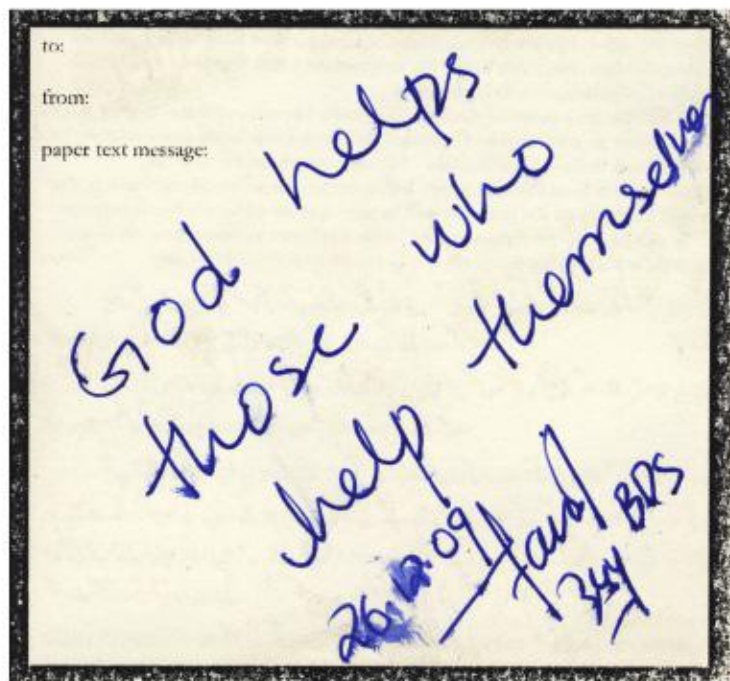 to:
from:
paper text message:
God helps
those who
help themselves
26.12.09
BDS